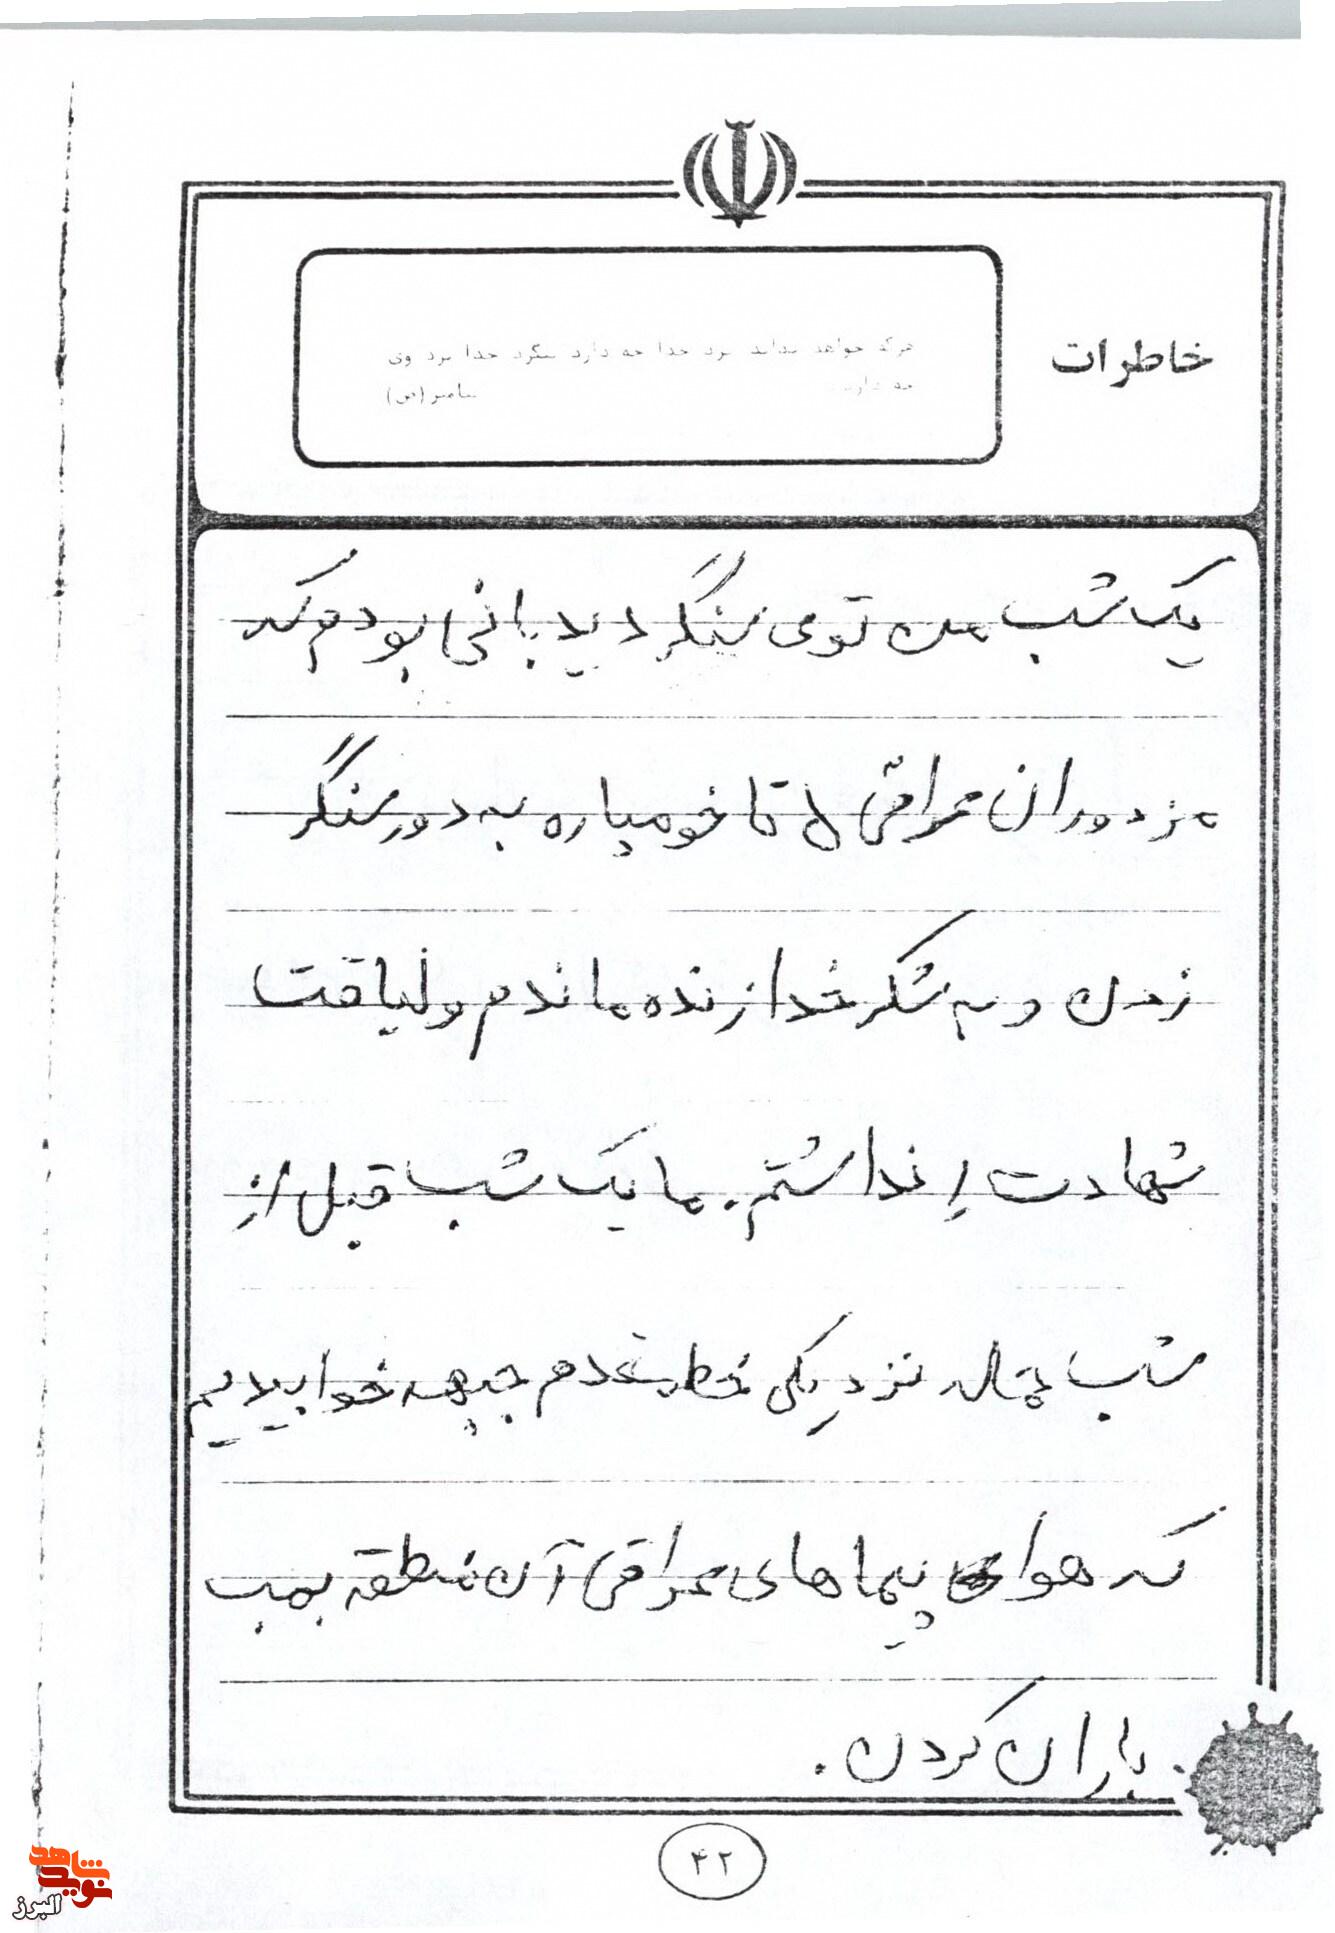 خاطرات
هرکه خواهد بداند نزد خدا چه دارد بنگرد خدا نزد وی
چه دارد پیامبر (ص)
یک شب من توی سنگر دیدبانی بودم که
مزدوران عراقی ۵ تا خومپاره به دور سنگر
زدن و به شکر خدا زنده ماندم و لیاقت
شهادت را نداشتم. ما یک شب قبل از
شب حمله نزدیکی خط مقدم جبهه خوابیدیم
که هوا پیماهای عراقی آن منطقه بمب
باران کردن.
۴۲
نوید شاهد
البرز